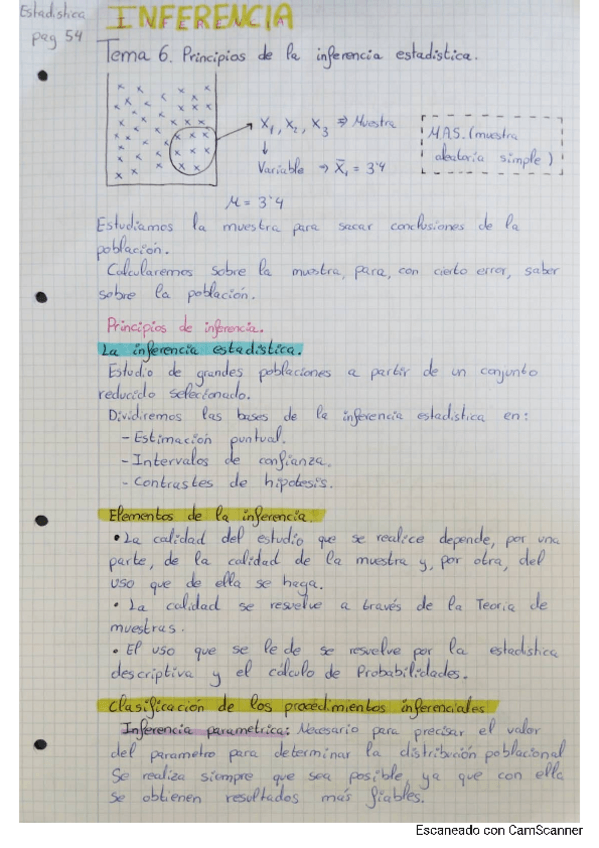 Estadistica
pag 54
INFERENCIA
Tema 6. Principios de la inferencia estadistica.
X1, X2, X3 ⇒ Muestra
↓
Variable → X̄1 = 3'4
M.A.S. (muestra
aleatoria simple)
M = 3'4
Estudiamos la muestra para sacar conclusiones de la
población.
Calcularemos sobre la muestra, para, con cierto error, saber
sobre la población.
Principios de inferencia.
La inferencia estadistica.
Estudio de grandes poblaciones a partir de un conjunto
reducido selecionado.
Dividiremos las bases de la inferencia estadistica en:
- Estimación puntual.
- Intervalos de confianza.
- Contrastes de hipotesis.
Elementos de la inferencia.
• La calidad del estudio que se realice depende, por una
parte, de la calidad de la muestra y, por otra, del
uso que de ella se haga.
• La calidad se resuelve a través de la Teoria de
muestras.
• El uso que se le de se resuelve por la estadistica
descriptiva y el cálculo de Probabilidades.
Clasificación de los procedimientos inferenciales
Inferencia parametrica: Necesario para precisar el valor
del parametro para determinar la distribución poblacional
Se realiza siempre que sea posible, ya que con ella
se obtienen resultados más fiables.
Escaneado con CamScanner